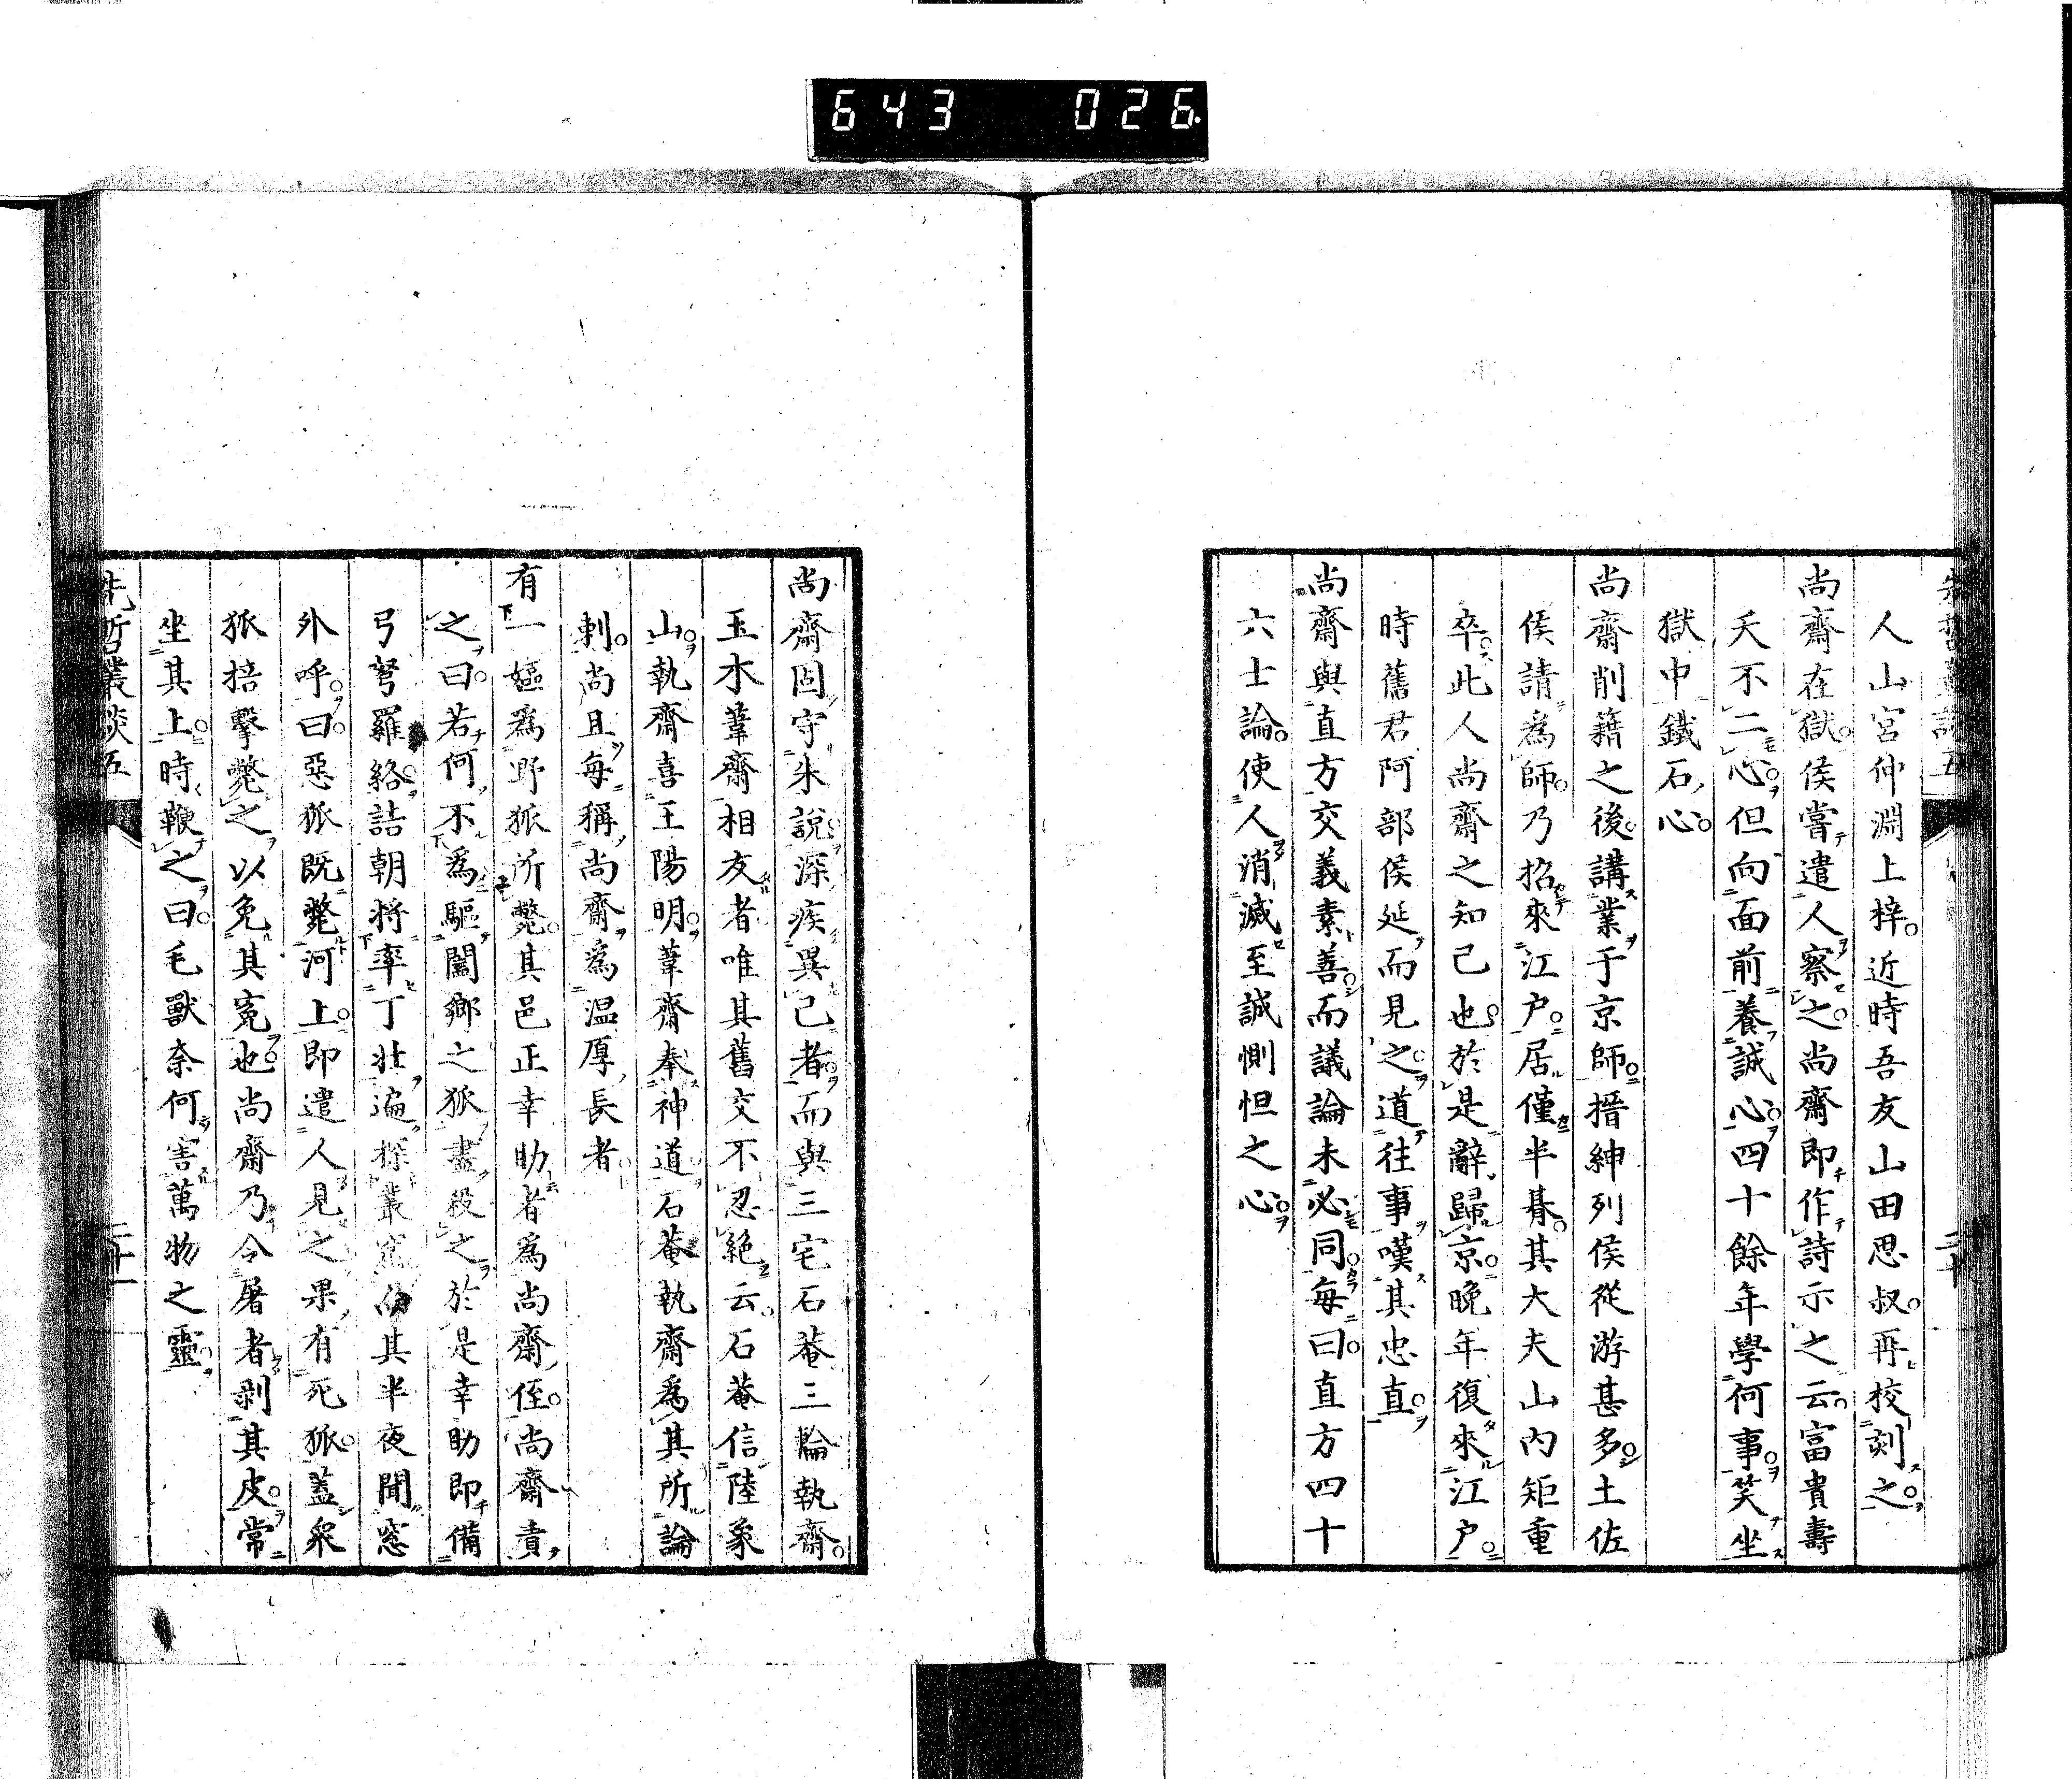 643 026
人山宮仲淵上梓。近時吾友山田思叔。再校刻之。
尚齋在獄。侯嘗遣人察之。尚齋即作詩示之云。富貴壽
夭不二心。但向面前養誠心。四十餘年學何事。笑坐
獄中鐵石心。
尚齋削籍之後。講業于京師。搢紳列侯從游甚多。土佐
侯請為師。乃招來江戶。居僅半朞。其大夫山內矩重
卒。此人尚齋之知己也。於是辭歸京。晚年復來江戶。
時舊君阿部侯延而見之。道往事嘆其忠直。
尚齋與直方交義素善。而議論未必同。每曰。直方四十
六士論。使人消滅至誠惻怛之心。
尚齋固守朱說。深疾異己者。而與三宅石菴三輪執齋。
玉水葦齋相友者。唯其舊交不忍絕云。石菴信陸象
山。執齋喜王陽明。葦齋奉神道。石菴執齋為其所論
刺。尚且每稱尚齋為溫厚長者。
有一嫗為野狐所斃。其邑正幸助者為尚齋侄。尚齋責
之曰。若何不為驅闔鄉之狐盡殺之。於是幸助即備
弓弩羅絡。詰朝將率丁壯遍探叢窟。其半夜聞窓
外呼。曰。惡狐既斃河上。即遣人見之。果有死狐。蓋眾
狐掊擊斃之。以免其寃也。尚齋乃令屠者剝其皮。常
坐其上。時鞭之曰。毛獸奈何害萬物之靈。
先哲叢談五
二十一